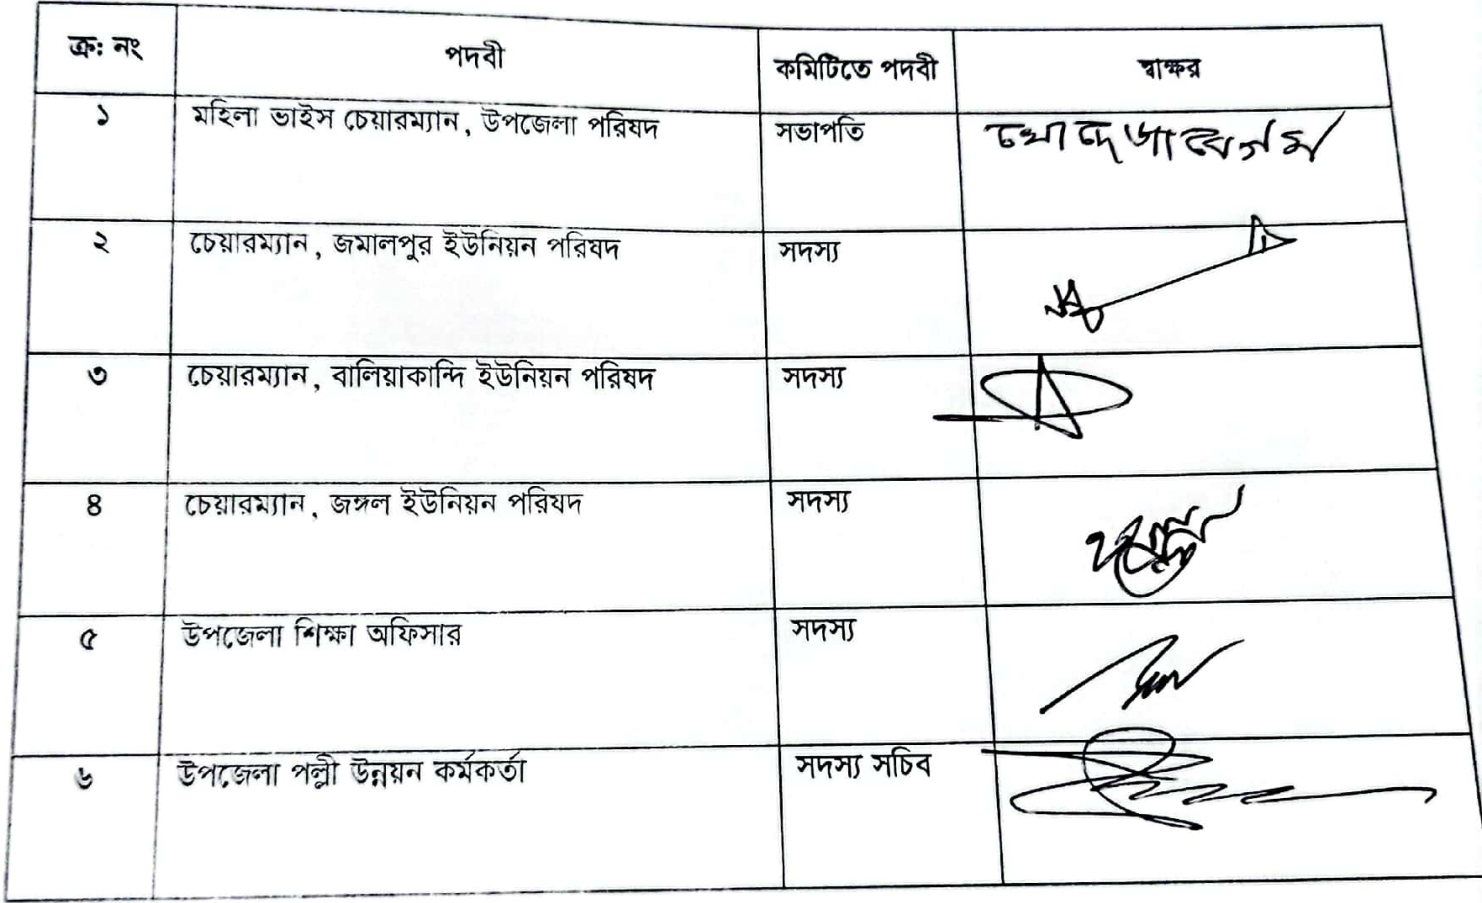 ক্র: নং পদবী কমিটিতে পদবী স্বাক্ষর
১ মহিলা ভাইস চেয়ারম্যান, উপজেলা পরিষদ সভাপতি খোদেজা বেগম
২ চেয়ারম্যান, জমালপুর ইউনিয়ন পরিষদ সদস্য
৩ চেয়ারম্যান, বালিয়াকান্দি ইউনিয়ন পরিষদ সদস্য
৪ চেয়ারম্যান, জঙ্গল ইউনিয়ন পরিষদ সদস্য
৫ উপজেলা শিক্ষা অফিসার সদস্য
৬ উপজেলা পল্লী উন্নয়ন কর্মকর্তা সদস্য সচিব